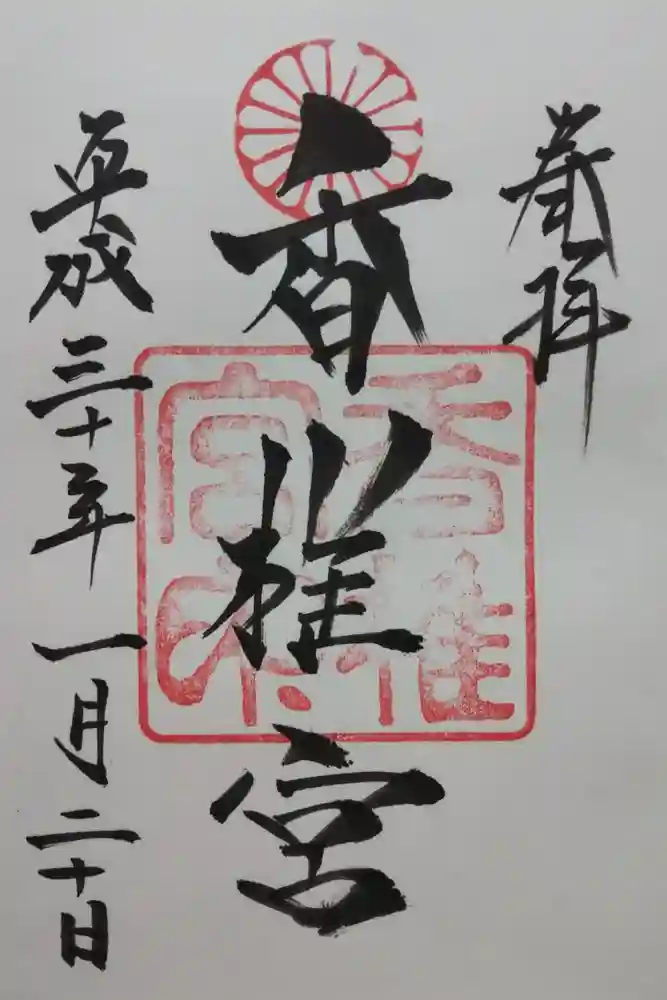 奉拝
香椎宮
香椎
宮
平成三十年一月二十日